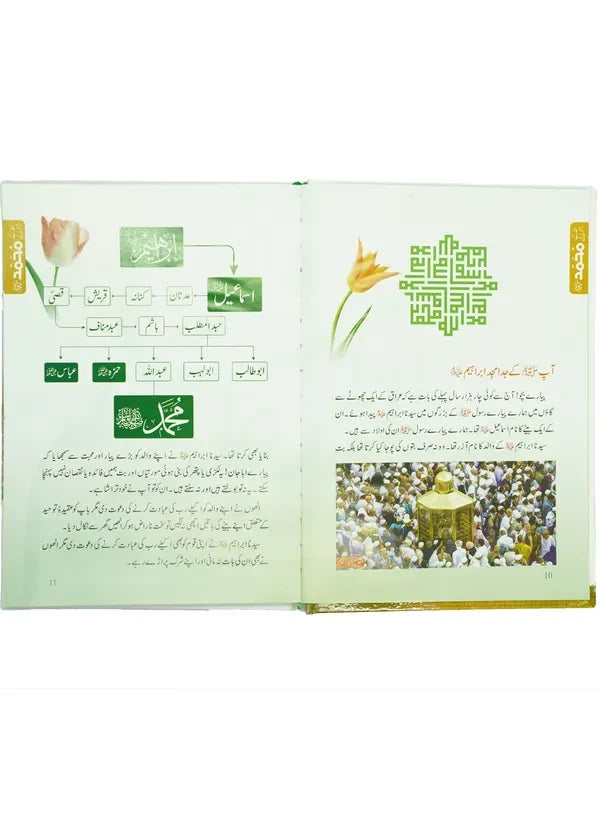 محمد ﷺ
آپ ﷺ کے جد امجد ابراہیم علیہ السلام
پیارے بچو! آج سے کوئی چار ہزار سال پہلے کی بات ہے کہ عراق کے ایک چھوٹے سے
گاؤں میں ہمارے پیارے رسول ﷺ کے بزرگوں میں سیدنا ابراہیم علیہ السلام پیدا ہوئے۔ ان
کے ایک بیٹے کا نام اسماعیل علیہ السلام تھا۔ ہمارے پیارے رسول ﷺ ان کی اولاد سے ہیں۔
سیدنا ابراہیم علیہ السلام کے والد کا نام آزر تھا۔ وہ نہ صرف بتوں کی پوجا کیا کرتا تھا بلکہ بت
10
محمد ﷺ
ابراہیم
اسماعیل
عدنان
کنانہ
قریش
قصیّ
عبد مناف
ہاشم
عبدالمطلب
ابو طالب
ابولہب
عبداللہ
حمزہ
عباس
محمد ﷺ
بنایا بھی کرتا تھا۔ سیدنا ابراہیم علیہ السلام نے اپنے والد کو بڑے پیار اور محبت سے سمجھایا کہ
پیارے ابا جان! یہ لکڑی یا پتھر کی بنی ہوئی مورتیاں اور بت ہمیں فائدہ یا نقصان نہیں پہنچا
سکتے۔ یہ نہ تو بولتے ہیں اور نہ سنتے ہیں۔ ان کو تو آپ نے خود تراشا ہے۔
انھوں نے اپنے والد کو اپنے رب کی عبادت کرنے کی دعوت دی مگر باپ کو عقیدۂ توحید کے
متعلق اپنے بیٹے کی باتیں اچھی نہ لگیں تو سخت ناراض ہو کر انھیں گھر سے نکال دیا۔
سیدنا ابراہیم علیہ السلام نے اپنی قوم کو بھی اکیلے رب کی عبادت کرنے کی دعوت دی مگر انھوں
نے بھی ان کی بات نہ مانی اور اپنے شرک پر اڑے رہے۔
11